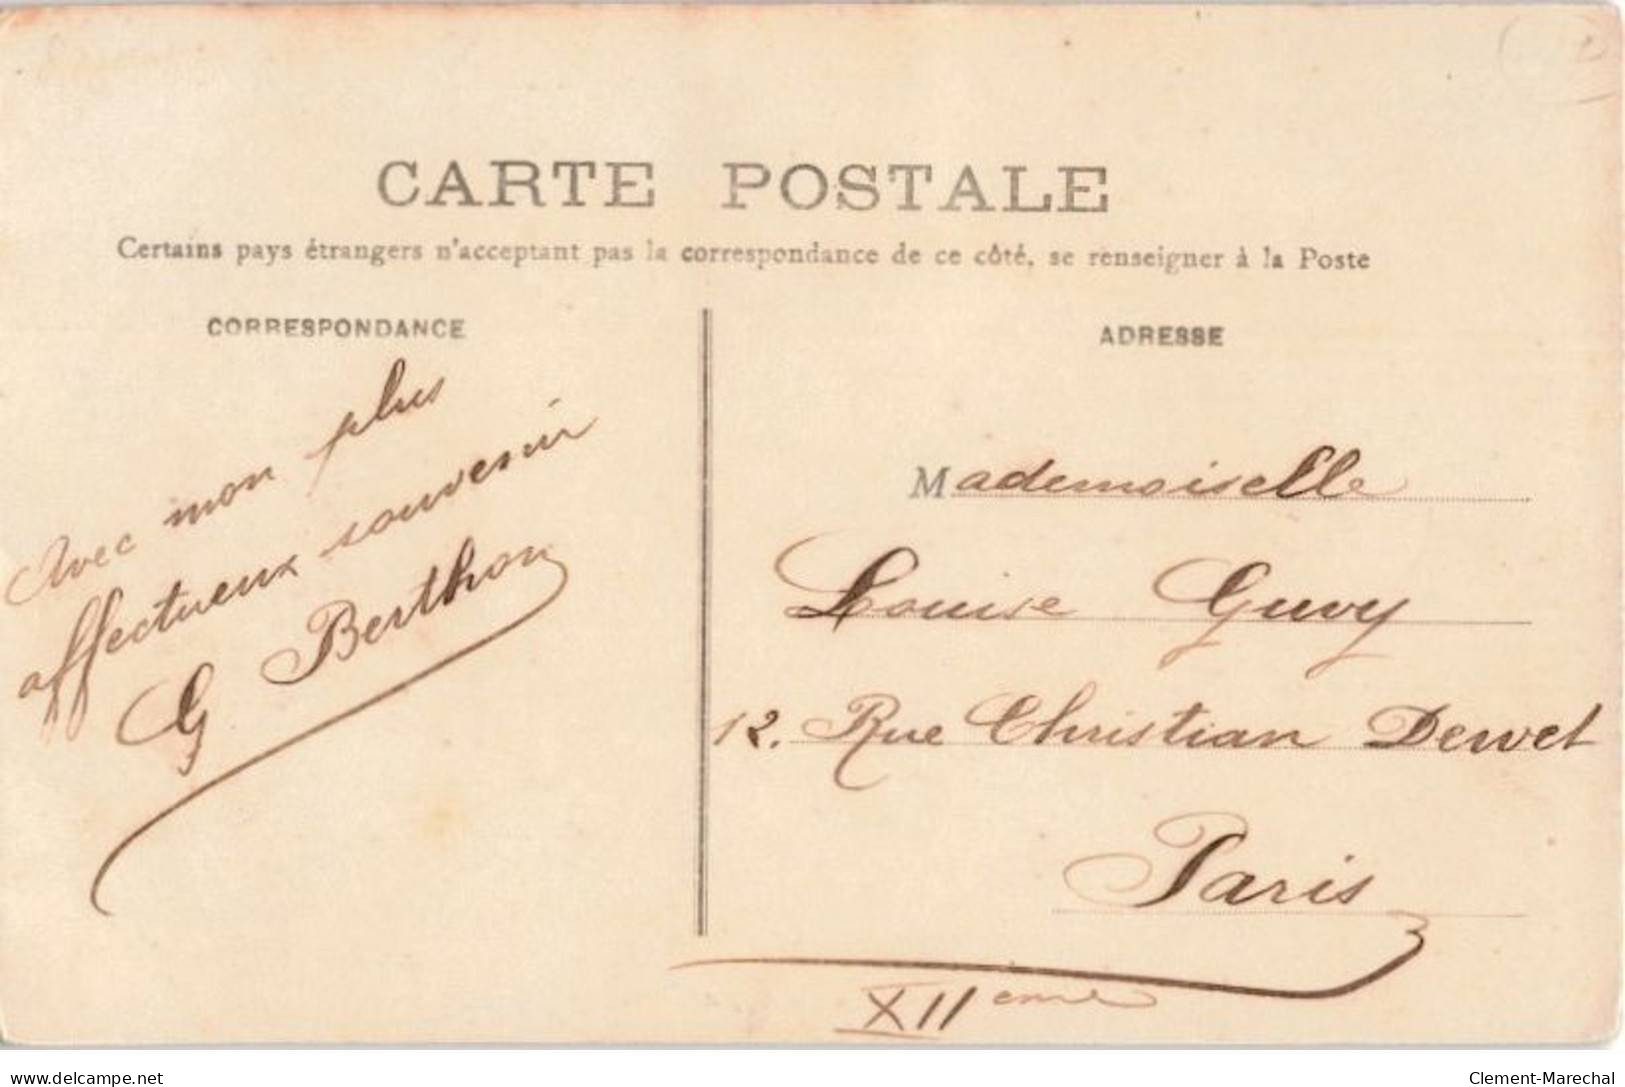 CARTE POSTALE
Certains pays étrangers n'acceptant pas la correspondance de ce côté, se renseigner à la Poste
CORRESPONDANCE
Avec mon plus
affectueux souvenir
G Berthon
ADRESSE
Mademoiselle
Louise Guvy
12. Rue Christian Dewet
Paris
XIIeme
www.delcampe.net
Clement-Marechal